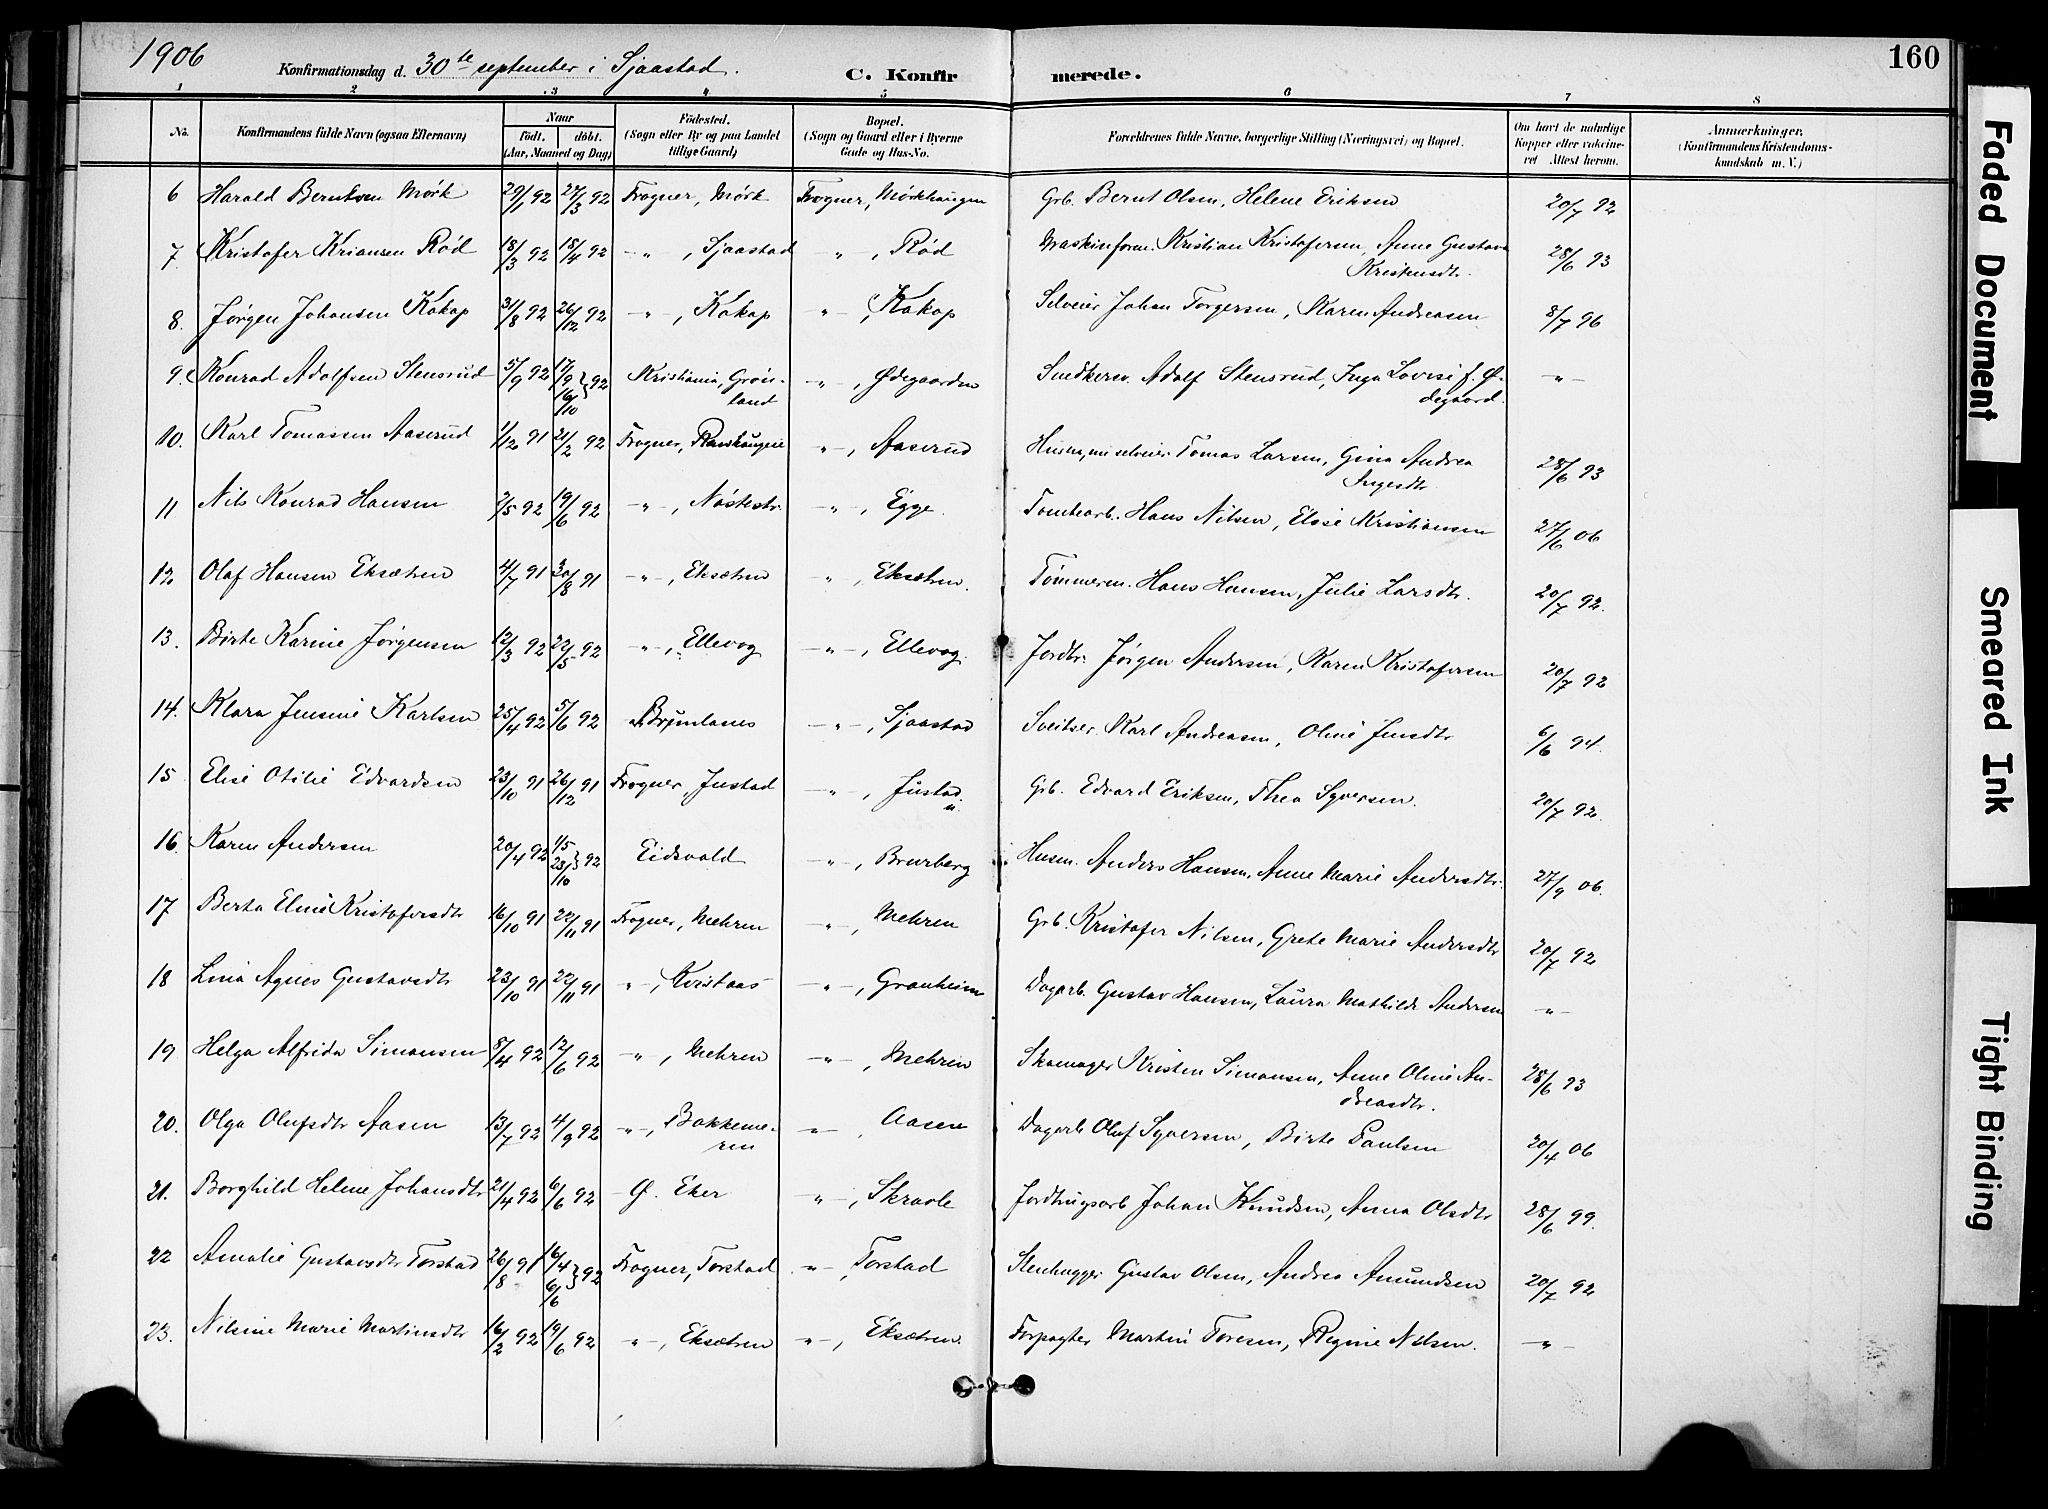 1906
Konfirmationsdag d. 30te september i Sjaastad.
C. Konfirmerede.
160
1 2 3 4 5 6 7 8
No. | Konfirmandens fulde Navn (ogsaa Efternavn) | Naar født. døbt. (Aar, Maaned og Dag) | Fødested. (Sogn eller By og paa Landet tillige Gaard) | Bopæl. (Sogn og Gaard eller i Byerne Gade og Hus-No. | Forældrenes fulde Navne, borgerlige Stilling (Næringsvei) og Bopæl. | Om havt de naturlige Kopper eller vaccineret Attest herom. | Anmærkninger. (Konfirmandens Kristendomskundskab m. V.)
6 Harald Berntsen Mørk 29/1 92 27/3 92 Frogner, Mørk Frogner, Mørkhaugen Grb. Bernt Olsen, Helene Eriksen 20/7 92
7. Kristofer Kriansen Rød 18/3 92 18/4 92 -"-, Sjaastad -"-, Rød Maskinform. Kristian Kristofersen, Anne Gustava Kristensdtr. 28/6 93
8. Jørgen Johansen Kokop 31/8 92 26/12 92 -"-, Kokop -"-, Kokop Selveier Johan Torgersen, Karen Andreasen 8/7 96
9. Konrad Adolfsen Stensrud 5/9 92 17/9 16/10 } 92 Kristiania, Grönland -"-, Ødegaarden Snedkersv. Adolf Stensrud, Inga Lovise f. Ødegaard. -"-
10. Karl Tomassen Aaserud 1/12 91 21/2 92 Frogner, "-, Aaserud Husm, nu selveier Tomas Larsen, Gina Andrea Ingesdtr 28/6 93
11 Nils Konrad Hansen 2/5 92 19/6 92 -"-, Nøstestr. -"-, Egge. Tomtearb. Hans Nilsen, Elise Kristiansen 27/6 06
12. Olaf Hansen Eksætren 4/7 91 30/8 91 -"-, Eksætren -"-, Eksætren. Tømmerm. Hans Hansen, Julie Larsdtr. 20/7 92.
13. Birte Karine Jørgensen 12/3 92 22/5 92 -"-, Ellevog -"-, Ellevog. Jordbr. Jørgen Andersen, Karen Kristofersen 20/7 92
14. Klara Jensine Karlsen 25/4 92 5/6 92 Brunlanes -"-, Sjaastad Sveitser Karl Andreasen, Oline Jensdtr 6/6 94.
15 Elise Otilie Edvardsen 23/10 91 26/12 91 Frogner, Justad -"-, Justad. Grb. Edvard Eriksen, Thea Syversen. 20/7 92.
16. Karen Andersen 20/4 92 1/5 23/10 } 92 Eidsvold -"-, Brurberg Husm. Anders Hansen, Anne Marie Andersdtr. 27/9 06.
17 Berta Elise Kristofersdtr 16/10 91 22/11 91 Frogner, Mehren -"-, Mehren Grb. Kristofer Nilsen, Grete Marie Andersdtr 20/7 92
18 Lina Agnes Gustavsdtr 23/10 91 22/11 91 "-, Kvistaas -"-, Granheim Dagarb. Gustav Hansen, Laura Mathilde Andersen -"-
19 Helga Alfrida Simonsen 8/4 92 12/6 92 -"-, Mehren -"-, Mehren Skomager Kristen Simonsen, Anne Oline Andreasdtr. 28/6 93
20. Olga Olufsdtr Aasen 13/7 92 4/9 92 -"-, Bakkemeren "-, Aasen Dagarb Oluf Syversen, Birte Paulsen 20/4 06
21. Borghild Helene Johansdtr 21/4 92 6/6 92 Ø. Eker "-, Skravle Jordbrugsarb Johan Knudsen, Anna Olsdtr 28/6 99.
22 Amalie Gustavsdtr Torstad 26/8 91 16/4 6/6 } 92 Frogner, Torstad "-, Torstad Stenhugger Gustav Olsen, Andrea Amundsen 20/7 92
23. Nilsine Marie Martinsdtr 16/2 92 19/6 92 "-, Eksætren "-, Eksætren. Forpagter Martin Toresen, Regine Nilsen. -"-
Faded Document
Smeared Ink
Tight Binding